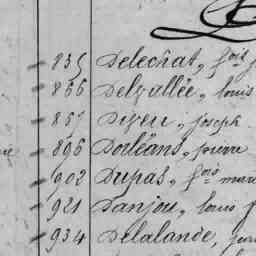 835 Delechat, fois
866 Delvallée, louis
867 Dizeu, joseph
896 Dorléans, pierre
902 Dupas, fois marie
921 Danjou, louis
934 Delalande,